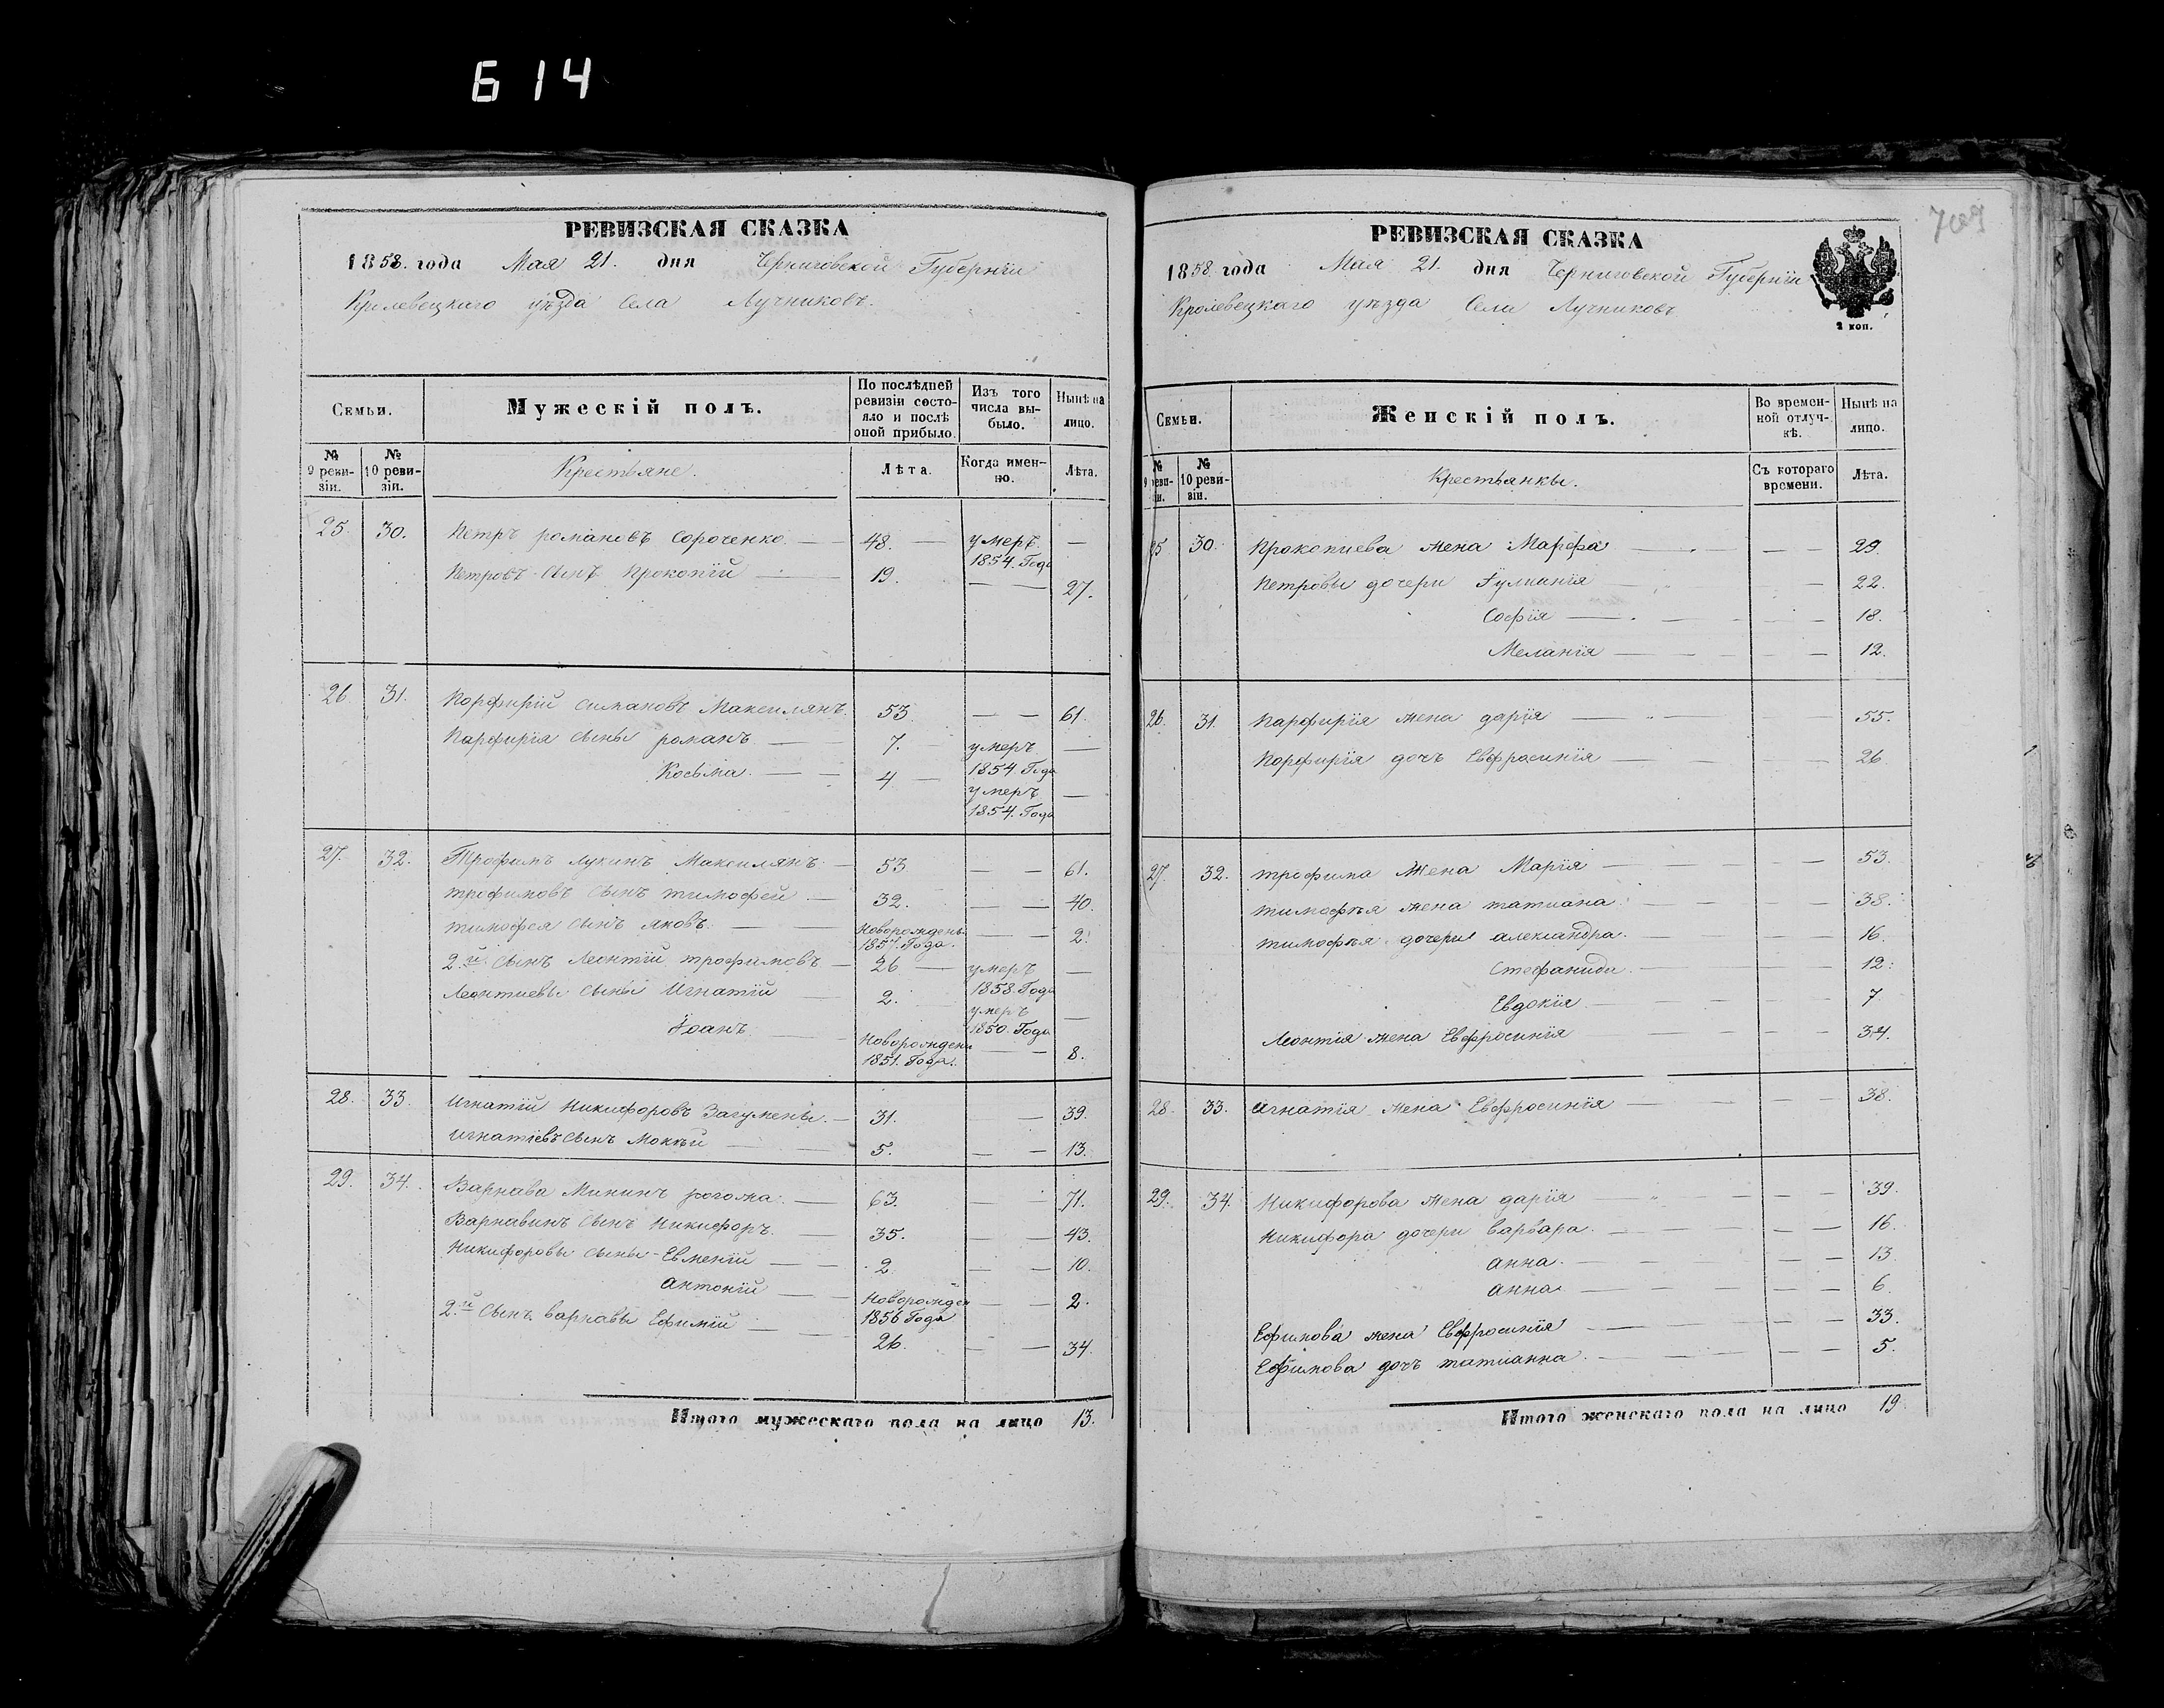 614
709
РЕВИЗСКАЯ СКАЗКА
1858. года Мая 21. дня Черниговской Губерніи
Кролевецкаго уѣзда Села Лучниковъ.
Семьи.
Мужескій полъ.
По послѣдней ревизіи состояло и послѣ оной прибыло.
Изъ того числа выбыло.
Нынѣ на лицо.
№ 9 ревизіи.
№ 10 ревизіи.
Крестьяне.
Лѣта.
Когда именно.
Лѣта.
25. 30. Петръ романовъ Сороченко. — 48. — умеръ 1854. Года —
Петровъ Сынъ Прокопій — 19. — — 27.
26 31. Порфирій Симановъ Максимлянъ. 53 — — 61.
Парфирія Сыны романъ — — 7. умеръ 1854 Года —
Косьма. — — 4 — умеръ 1854. Года —
27. 32. Трофимъ Лукинъ Максимлянъ — 53 — — 61.
трофимовъ Сынъ тимофей — 32. — — 40.
тимофея Сынъ яковъ. — — Новорожденъ 1857. Года. — — 2.
2.й Сынъ Леонтій трофимовъ — 26 — умеръ 1858. Года —
Леонтиевы Сыны Игнатій — 2. умеръ 1850. Года —
Іоанъ — Новорожденъ 1851. Года. — — 8.
28. 33. Игнатій Никифоровъ Загумены. — 31. — 39.
Игнатіевъ Сынъ Мокѣй — 5. — — 13.
29. 34. Варнава Мининъ рогожа. — 63. — 71.
Варнавинъ Сынъ Никифоръ. — 35. — — 43.
Никифоровы Сыны - Евменій — — 2. — — 10.
Антоній — — Новорожден 1856 Года — — 2.
2.й Сынъ варнавы Ефимій — 26. — — 34.
Итого мужескаго пола на лицо 13.
РЕВИЗСКАЯ СКАЗКА
1858 года Мая 21. дня Черниговской Губерніи
Кролевецкаго уѣзда Села Лучниковъ
2 коп.
Семьи.
Женскій полъ.
Во временной отлучкѣ.
Нынѣ на лицо.
№ 9 ревизіи.
№ 10 ревизіи.
Крестьянки.
Съ котораго времени.
Лѣта.
25 30. Прокопиева жена Марфа — — — 29.
Петровы дочери Іулианія — — 22.
Софія — — — — 18.
Меланія — — — — 12.
26. 31. Парфирія жена дарія — — — 55.
Порфирія дочь Евфросинія — — — 26
27. 32. трофима Жена Марія — — — — 53.
тимофѣя жена татиана. — — — — 38.
тимофѣя дочери александра. — — — 16.
Стефанида. — — — 12.
Евдокія — — — — 7
Леонтія жена Евфросинія — — — — 34.
28. 33. Игнатія жена Евфросинія — — — — 38.
29. 34. Никифорова жена дарія — — — — 39.
Никифора дочери варвара. — — — — 16.
анна. — — — — 13
анна — — — — 6.
Ефимова жена Евфросинія — — — — 33.
Ефимова дочь татианна. — — — — 5.
Итого женскаго пола на лицо 19